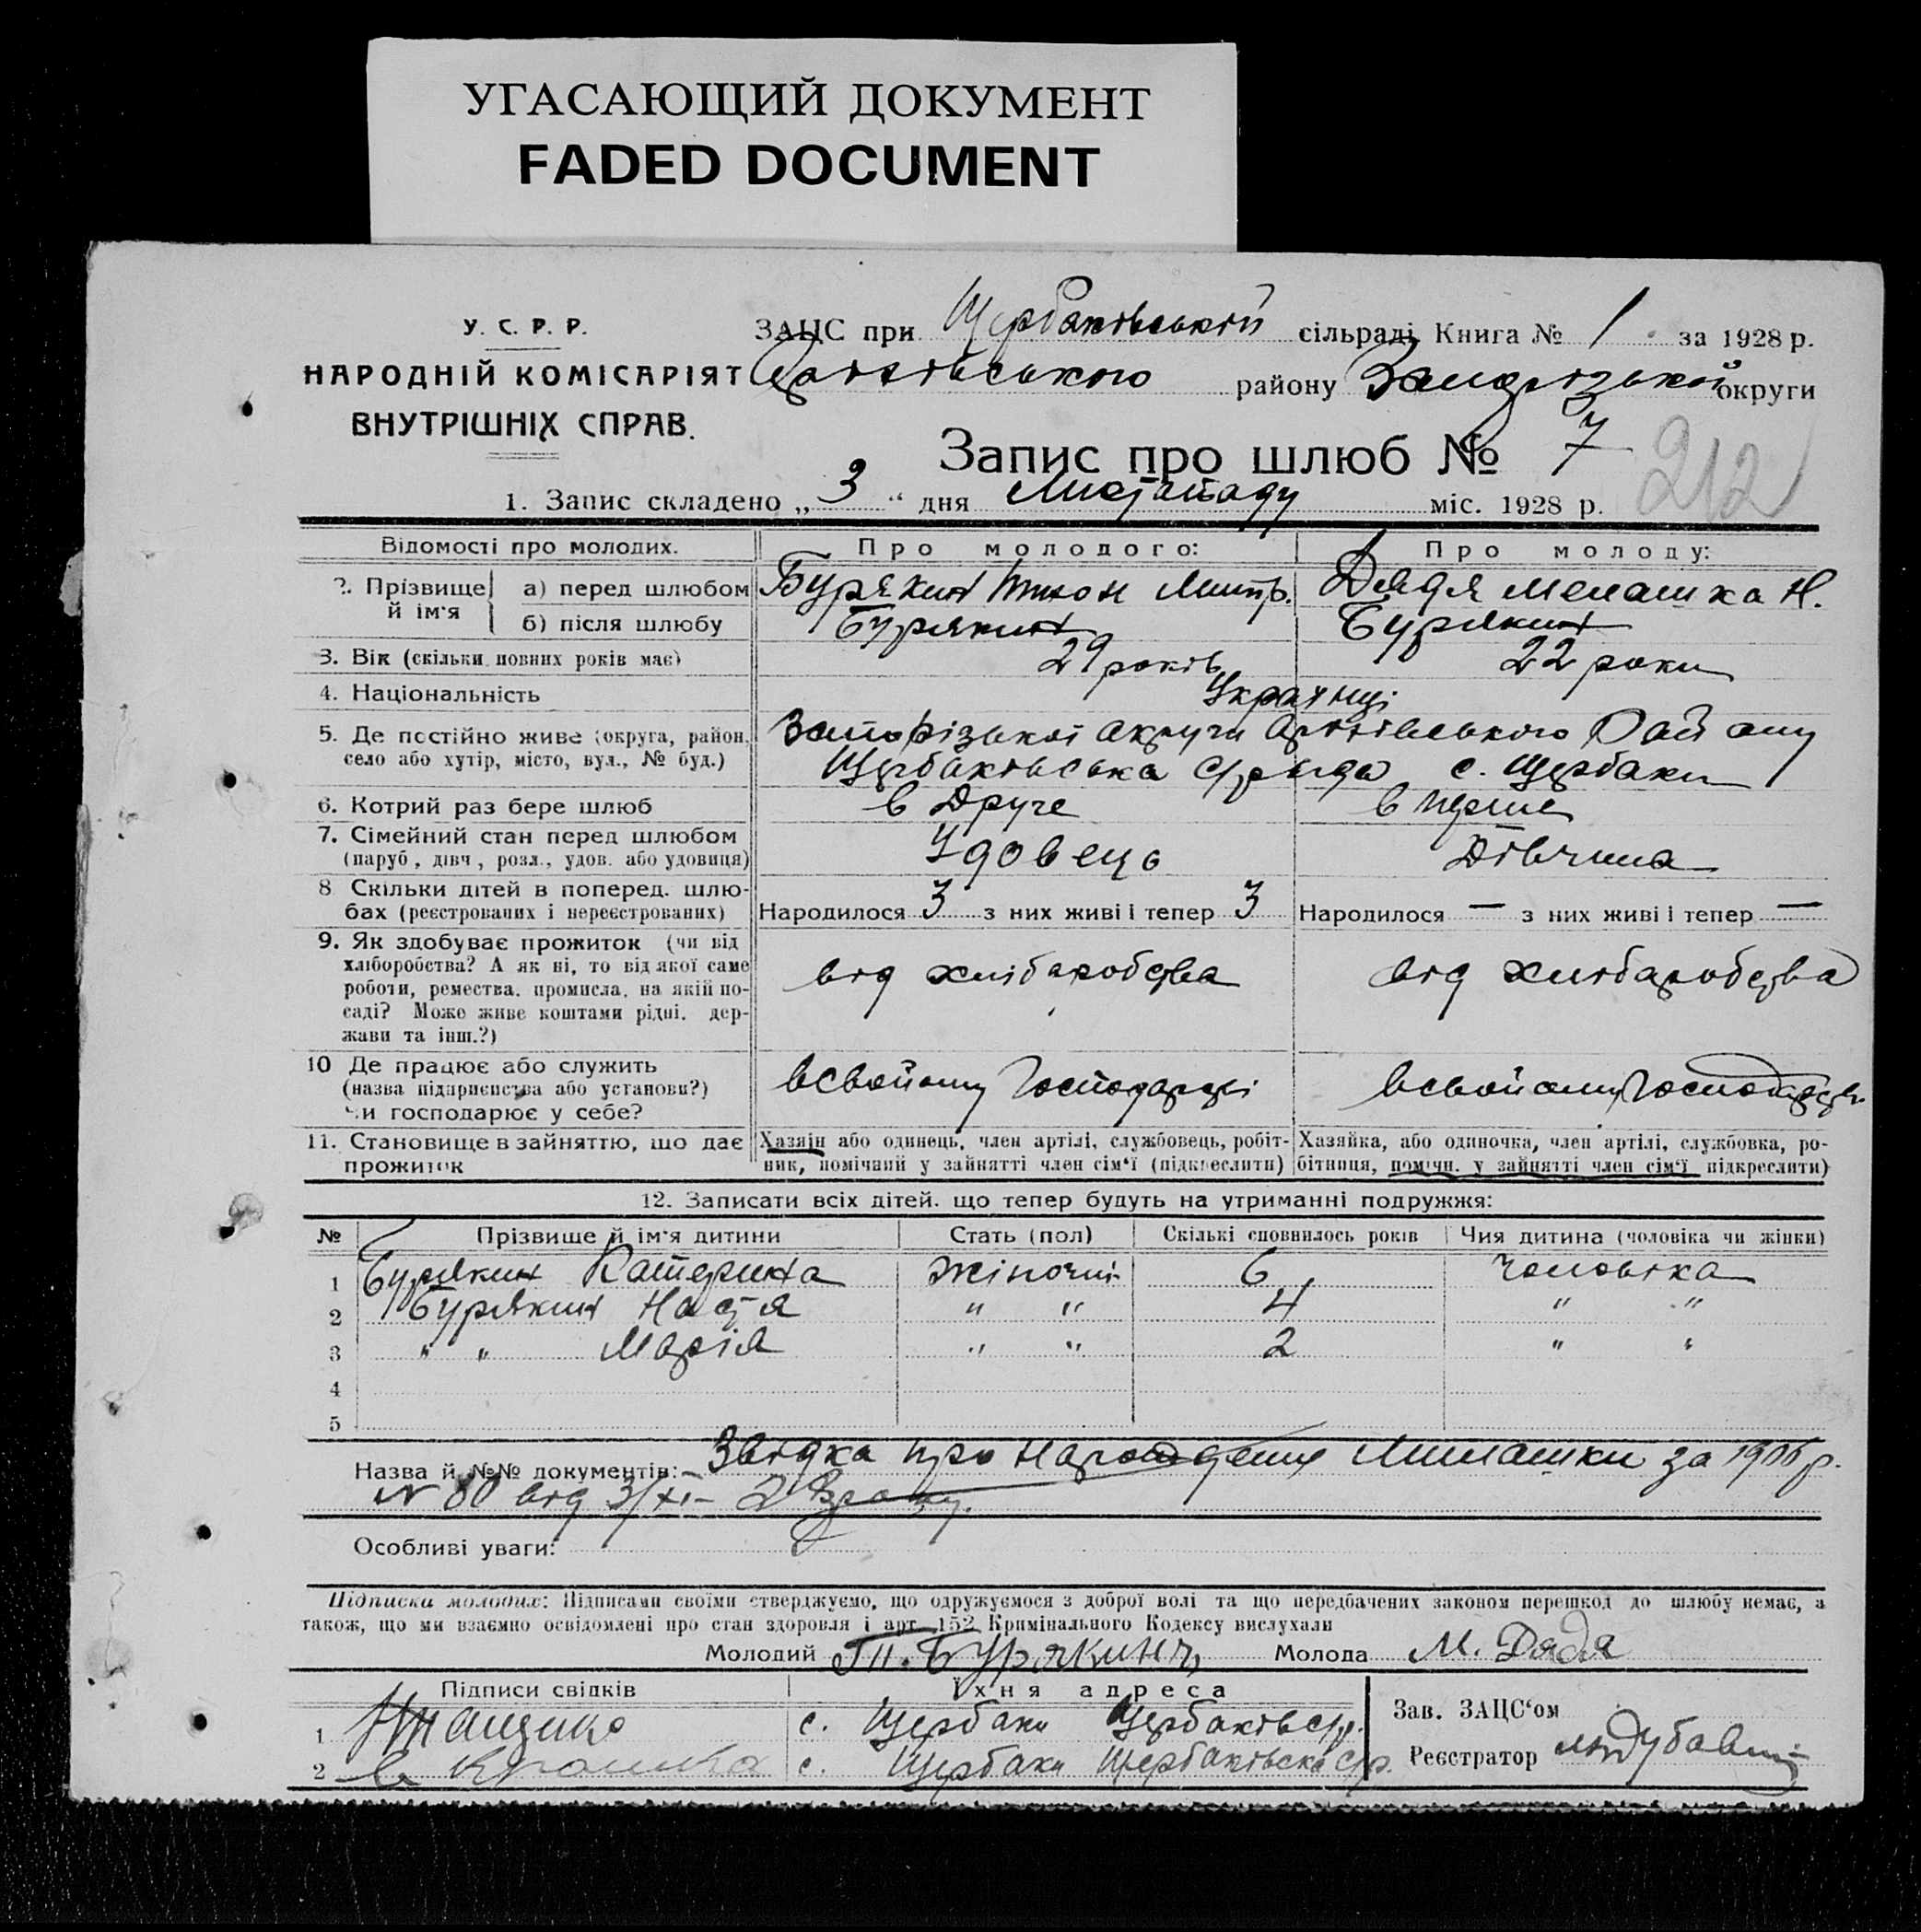 УГАСАЮЩИЙ ДОКУМЕНТ
FADED DOCUMENT
У. С. Р. Р.
НАРОДНІЙ КОМІСАРІЯТ
ВНУТРІШНІХ СПРАВ.
ЗАЦС при Щербаківській сільраді Книга № 1 за 1928 р.
району Запорізької округи
Запис про шлюб № 7
212
1. Запис складено „ 3 “ дня Листопаду міс. 1928 р.
Відомості про молодих. Про молодого: Про молоду:
2. Прізвище й ім'я а) перед шлюбом Бурякин Тихон Митр. Дядя Мелашка Н.
б) після шлюбу Бурякин Бурякин
3. Вік (скільки повних років має) 29 років 22 роки
4. Національність Українці
5. Де постійно живе (округа, район, село або хутір, місто, вул., № буд.) Запорізької округи Району
Щербаківська с/рада с. Щербаки
6. Котрий раз бере шлюб в Друге в перше
7. Сімейний стан перед шлюбом Удовець Дівчина
(паруб, дівч, розл., удов. або удовиця)
8 Скільки дітей в поперед. шлю-
бах (реєстрованих і нереєстрованих) Народилося 3 з них живі і тепер 3 Народилося — з них живі і тепер —
9. Як здобуває прожиток (чи від
хліборобства? А як ні, то від якої саме
роботи, ремества, промисла, на якій по-
саді? Може живе коштами рідні, дер-
жави та інш.?)
від хліборобства від хліборобства
10 Де працює або служить
(назва підприємства або установи?)
чи господарює у себе?
в свойому Господарці в свойому Господарці
11. Становище в зайняттю, що дає прожиток
Хазяїн або одинець, член артілі, службовець, робіт-
ник, помічний у зайнятті член сім‘ї (підкреслити)
Хазяйка, або одиночка, член артілі, службовка, ро-
бітниця, помічн. у зайнятті член сім‘ї підкреслити)
12. Записати всіх дітей, що тепер будуть на утриманні подружжя:
№ Прізвище й ім'я дитини Стать (пол) Скількі сповнилось років Чия дитина (чоловіка чи жінки)
1 Бурякин Катерина Жіночий 6 Чоловіка
2 Бурякин Настя " " 4 " "
3 " " Марія " " 2 " "
4
5
Назва й №№ документів: Звідка про народження Милашки за 1906 р.
№ 80 від 3/XI-
Особливі уваги:
Підписки молодих: Підписами своїми стверджуємо, що одружуємося з доброї волі та що передбачених законом перешкод до шлюбу немає, а
також, що ми взаємно освідомлені про стан здоровля і арт. 152 Кримінального Кодексу вислухали
Молодий Т. Бурякинъ Молода М. Дядя
Підписи свідків Їхня адреса
1 с. Щербаки Щербаків с/р.
2 с. Щербаки Щербаківська с/р.
Зав. ЗАЦС‘ом
Реєстратор